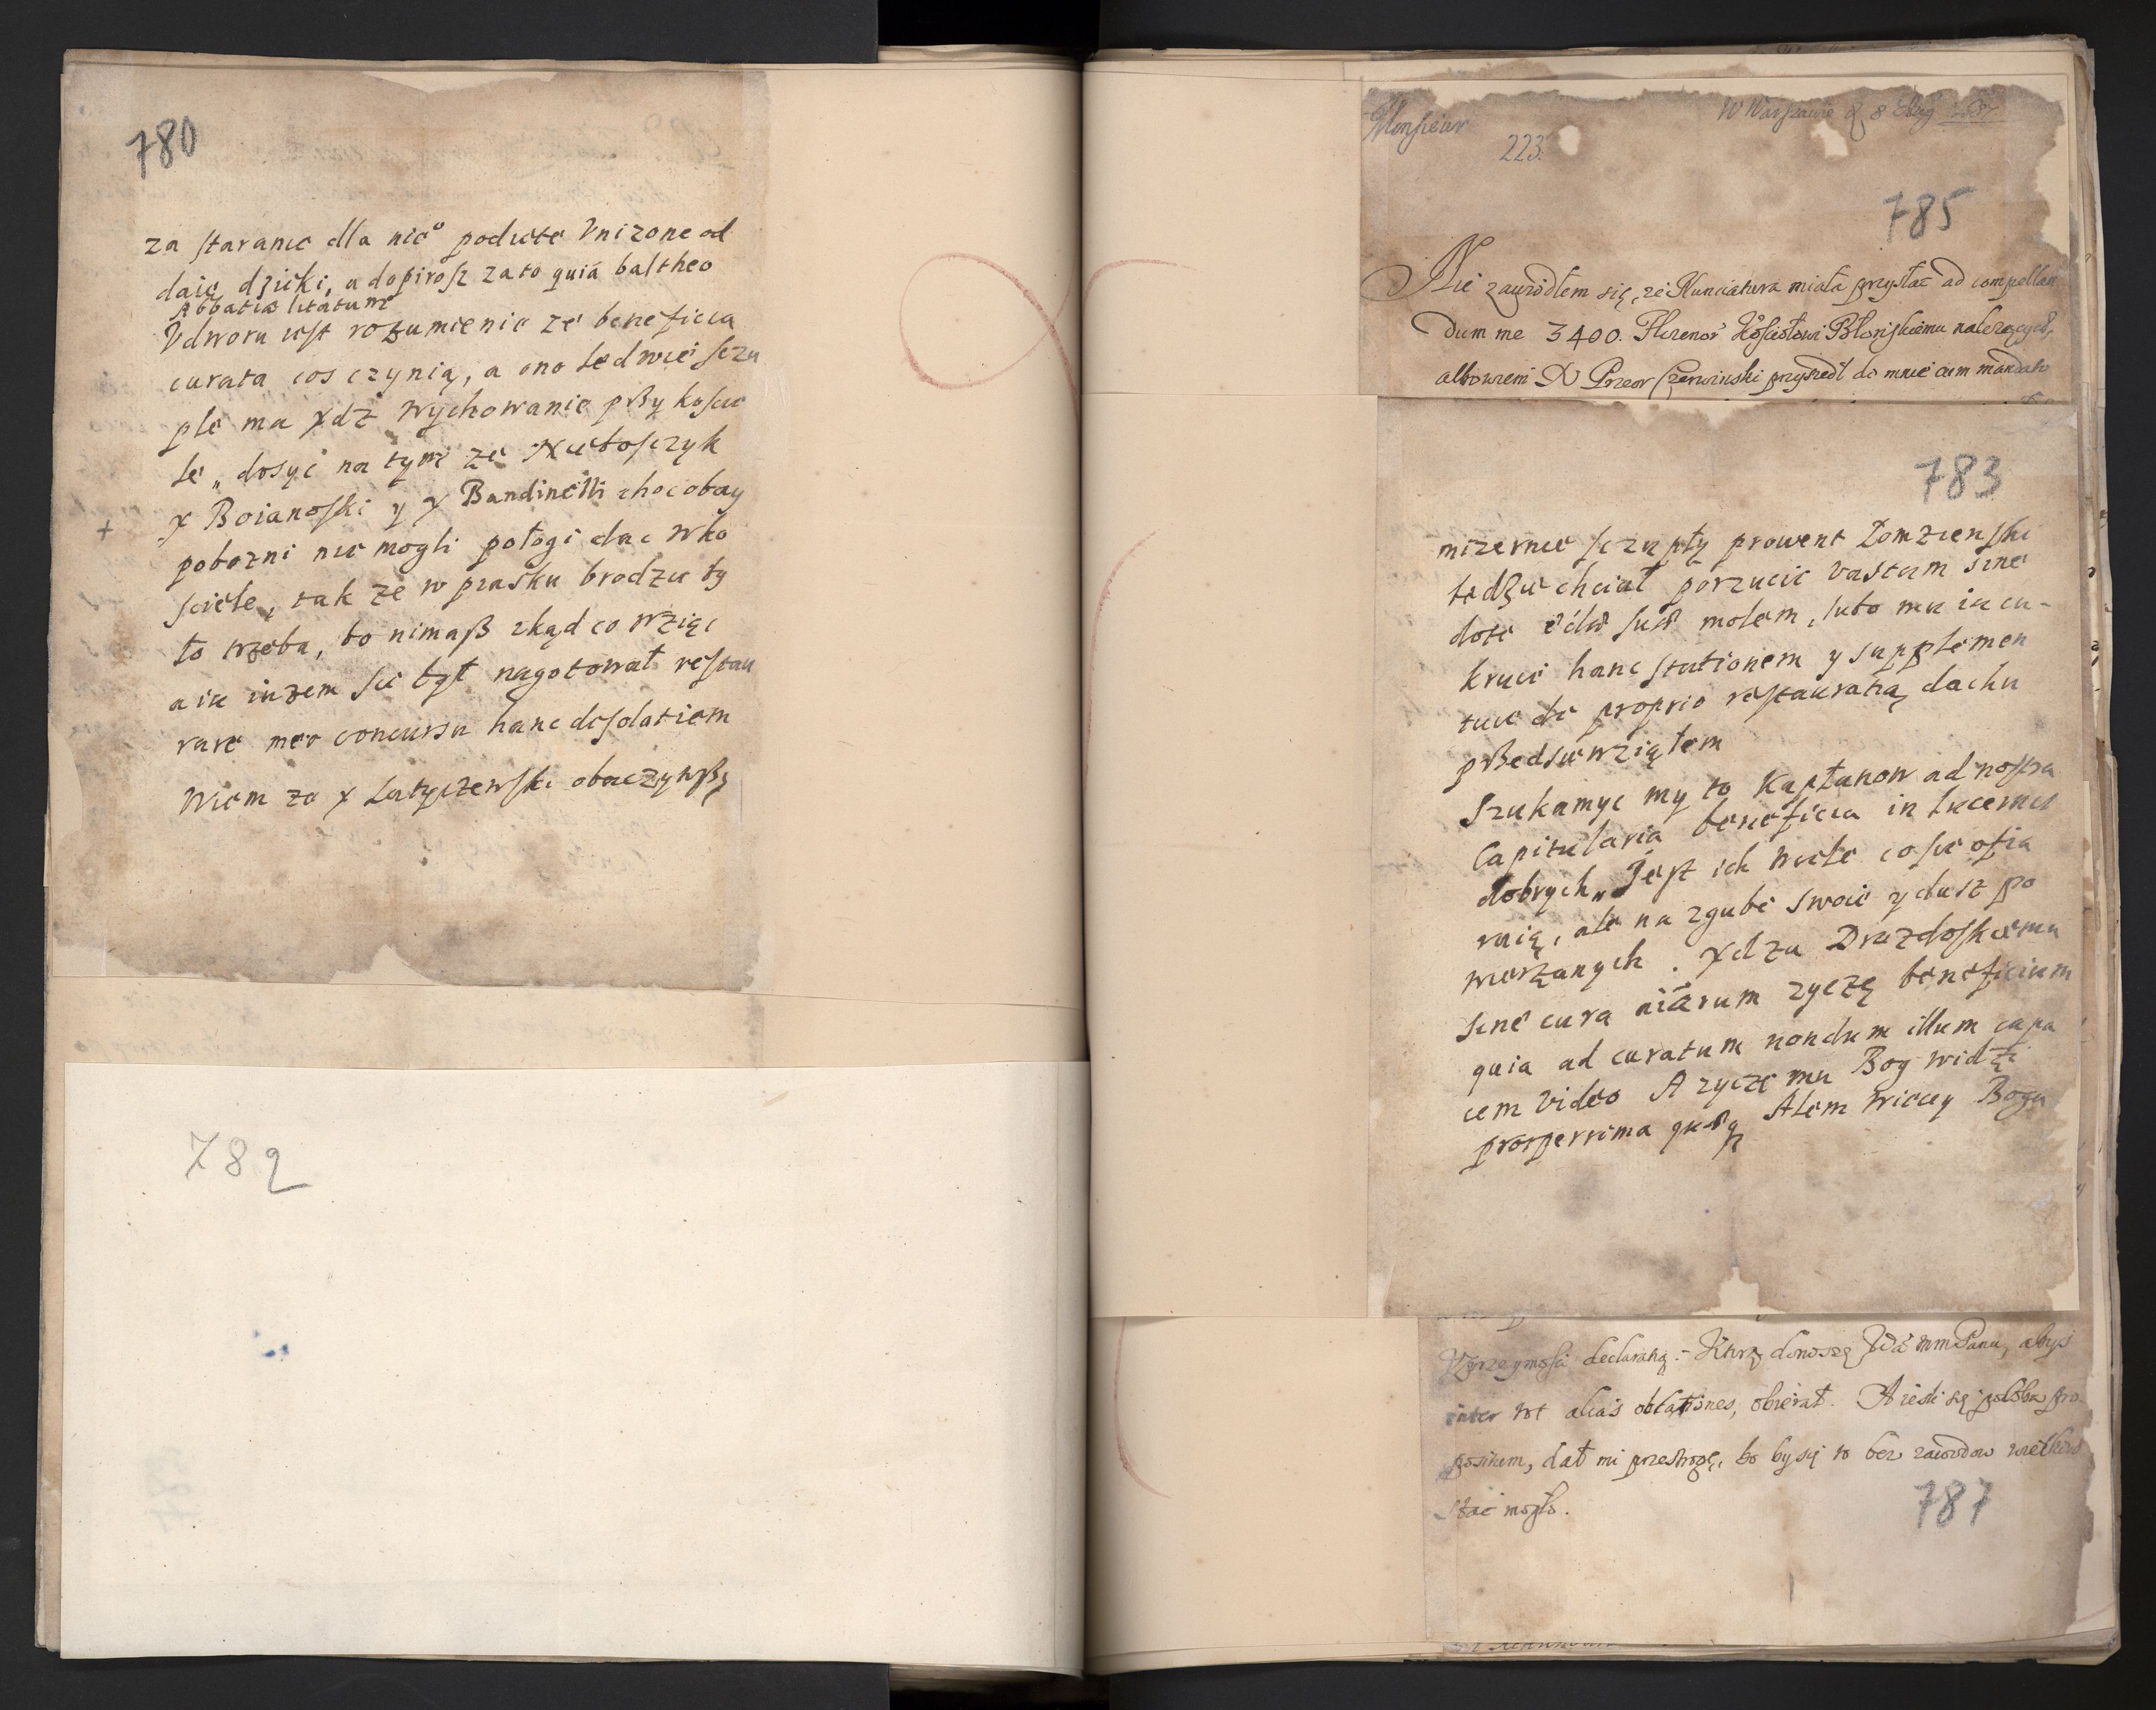 780
za staranie dla nieº podięte Vnizone od
daię dzięki, a dopirosz zato quia baltheo
Abbatis litatum
Vdworu iest rozumienie ze beneficia
curata cos czynią, a ono ledwie sczu
ple ma xdz wychowanie pßy kościе
le „ dosyć na tym ze
x Boianoski y x Bandinelli choc obay
+
pobozni nie mogli połogi dac wko
sciele, tak ze w piasku brodzic by
to trzeba, bo nimaß zkąd co wziąc
a ia iuzem sie był nagotował restau
rare meo concursu hanc desolatiem
Wiem ze x Latyczewski obaczywßy
782
Monsieur
W Warszawie 8
223.
785
Nie zawiodłem się, że Nunciatura miała przysłać ad compellan
dum me 3400. Florenoꝝ Kościołowi Błońskiemu należących,
albowiem X Przeor Czerwinski przyszedł do mnie cum mandato
783
miernie sczupły prowent Łomzienski
tedzie chciał porzucic vastam sine
dote molem, lubo mu ia cu-
kruie hanc stationem y supplemen
tuie de proprio restauratią dachu
pßedsiewziątem
Szukamyc my to Kapłanow ad nostra
Capitularia beneficia in lucernis
dobrych„ Jest ich wiele co sie ofia
ruią, ale na zgube swoie y dusz po
wierzanych. xdzu Drozdoskiemu
sine cura aiarum zyczę beneficium
quia ad curatum nondum illum capa
cem video A zycze mu Bog widzi
prosperrima Alem wiecey Bogu
Vprzeymości declaratią:- Którą donoszę Wa mm Panu, abyś
inter tot alias oblationes, obierał. A iesli się podoba pro
positum, dał mi przestrogę, bo by się to bez zawodow wielkich
stać mogło.
787